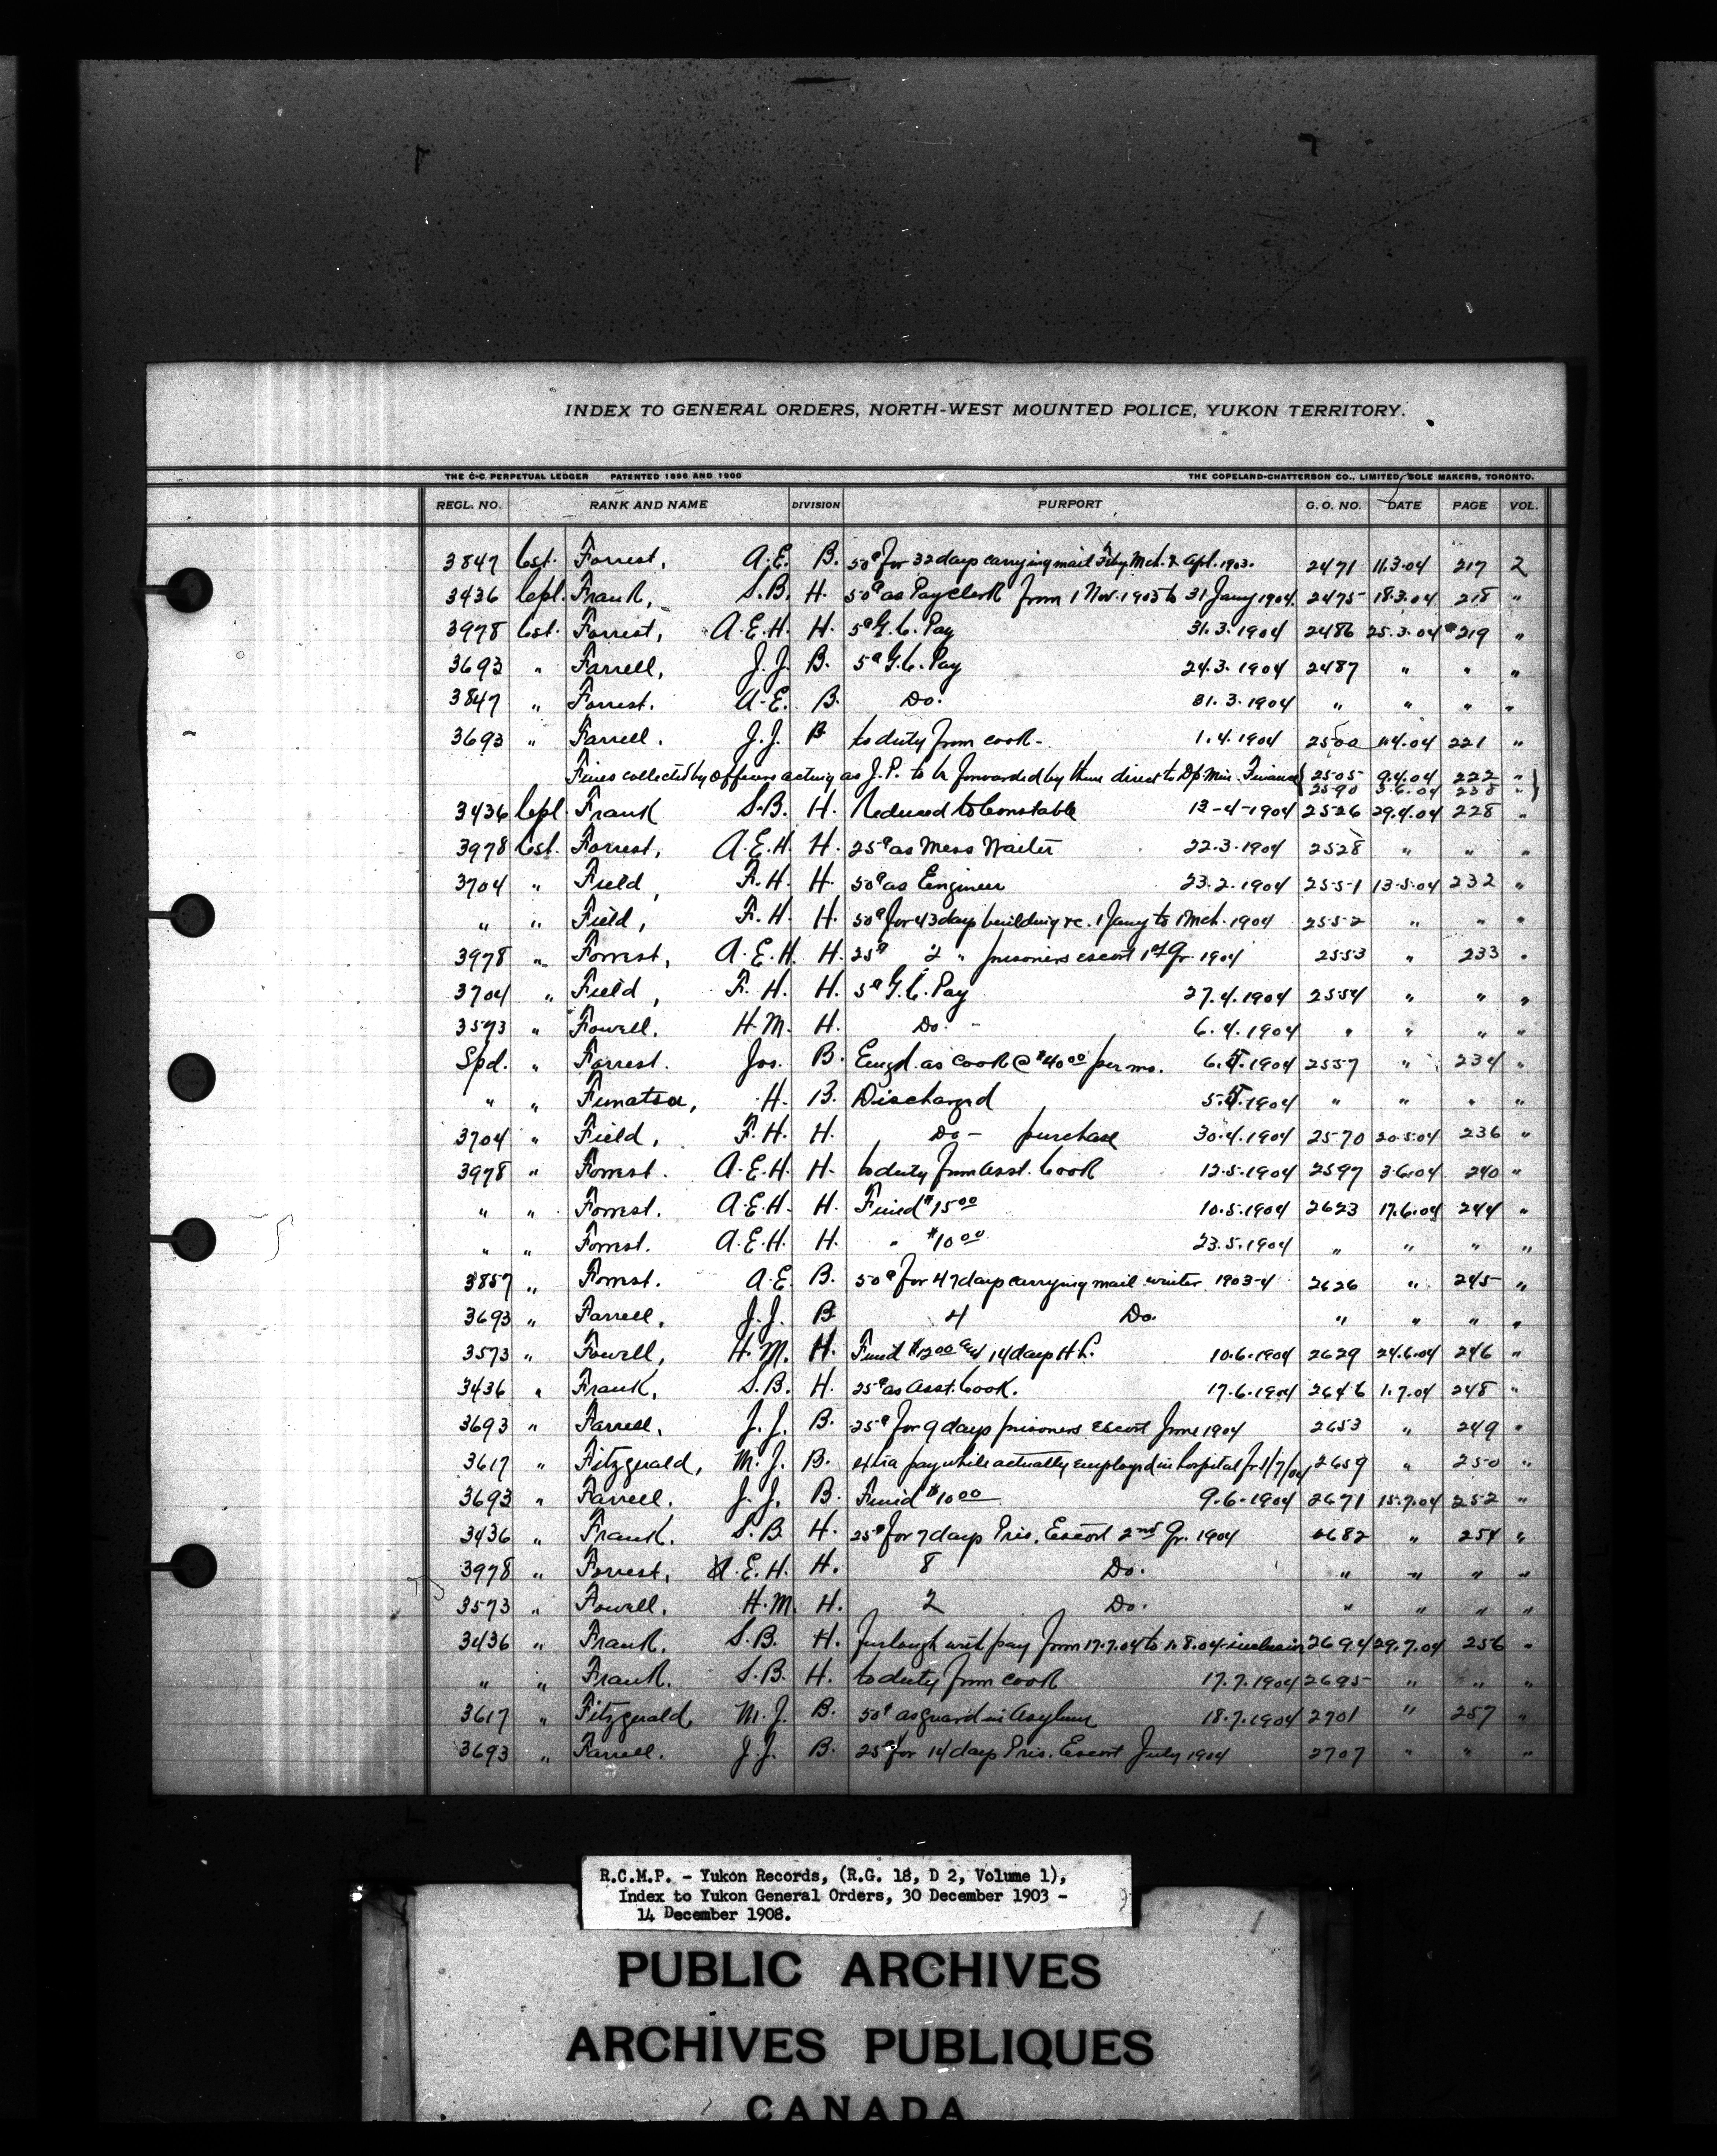 INDEX TO GENERAL ORDERS, NORTH-WEST MOUNTED POLICE, YUKON TERRITORY.
THE C-C PERPETUAL LEDGER PATENTED 1896 AND 1900 THE COPELAND-CHATTERSON CO., LIMITED, SOLE MAKERS, TORONTO.
REGL. NO. RANK AND NAME DIVISION PURPORT G. O. NO. DATE PAGE VOL.
3847 Cst. Forrest, A.E. B. 50¢ for 32 days carrying mail Feby. Mch. & Apl. 1903. 2471 11.3.04 217 2
3436 Cepl. Frank, S.B. H. 50¢ as Pay clerk from 1 Nov. 1903 to 31 Jany 1904. 2475 18.3.04 218 "
3978 Cst. Forrest, A.E.H. H. 5¢ G.C. Pay 31.3.1904 2486 25.3.04 219 "
3693 " Farrell, J.J. B. 5¢ G.C. Pay 24.3.1904 2487 " " "
3847 " Forrest. A.E. B. Do. 31.3.1904 " " " "
3693 " Farrell. J.J. B to duty from cook- 1.4.1904 2500 221 "
Fines collected by Officers acting as J.P. to be forwarded by them direct to Dp. Min. Finance { 2505 9.4.04 222 " }
2590 3.6.04 238 "
3436 Cepl. Frank S.B. H. Reduced to Constable 13-4-1904 2526 29.4.04 228 "
3978 Cst. Forrest, A.E.H. H. 25¢ as Mess Waiter 22.3.1904 2528 " " "
3704 " Field, F.H. H. 50¢ as Engineer 23.2.1904 2551 13.5.04 232 "
" " Field, F.H. H. 50¢ for 43 days building &c. 1 Jany to 1 Mch. 1904 2552 " " "
3978 " Forrest, A.E.H. H. 25¢ 2 " prisoners escort 1st Qr. 1904 2553 " 233 "
3704 " Field, F.H. H. 5¢ G.C. Pay 27.4.1904 2554 " " "
3573 " Fowell, H.M. H. Do. - 6.4.1904 " " " "
Spd. " Forrest. Jos. B. Engd. as cook @ $40.00 per mo. 6.5.1904 2557 " 234 "
" " H. B. Discharged 5.5.1904 " " " "
3704 " Field, F.H. H. Do - purchase 30.4.1904 2570 20.5.04 236 "
3978 " Forrest. A.E.H. H. to duty from asst. Cook 12.5.1904 2597 3.6.04 240 "
" " Forrest. A.E.H. H. Fined $15.00 10.5.1904 2623 17.6.04 244 "
" " Forrest. A.E.H. H. " $10.00 23.5.1904 " " " "
3857 " Forrest. A.E. B. 50¢ for 47 days carrying mail winter 1903-4 2626 " 245 "
3693 " Farrell, J.J. B 4 Do. " " " "
3573 " Fowell, H.M. H. Fined $12.00 and 14 days H.L. 10.6.1904 2629 24.6.04 246 "
3436 " Frank, S.B. H. 25¢ as Asst. Cook. 17.6.1904 2646 1.7.04 248 "
3693 " Farrell, J.J. B. 25¢ for 9 days prisoners escort June 1904 2653 " 249 "
3617 " Fitzgerald, M.J. B. extra pay while actually employed in hospital fr. 1/7/04 2659 " 250 "
3693 " Farrell. J.J. B. Fined $10.00 9.6.1904 2671 15.7.04 252 "
3436 " Frank. S.B. H. 25¢ for 7 days Pris. Escort 2nd Qr. 1904 2682 " 254 "
3978 " Forrest, A.E.H. H. 8 Do. " " " "
3573 " Fowell. H.M. H. 2 Do. " " " "
3436 " Frank. S.B. H. furlough with pay from 17.7.04 to 1.8.04 inclusive 2694 29.7.04 256 "
" " Frank. S.B. H. to duty from cook 17.7.1904 2695 " " "
3617 " Fitzgerald, M.J. B. 50¢ as guard in Asylum 18.7.1904 2701 " 257 "
3693 " Farrell. J.J. B. 25¢ for 14 days Pris. Escort July 1904 2707 " " "
R.C.M.P. - Yukon Records, (R.G. 18, D 2, Volume 1),
Index to Yukon General Orders, 30 December 1903 -
14 December 1908.
PUBLIC ARCHIVES
ARCHIVES PUBLIQUES
CANADA